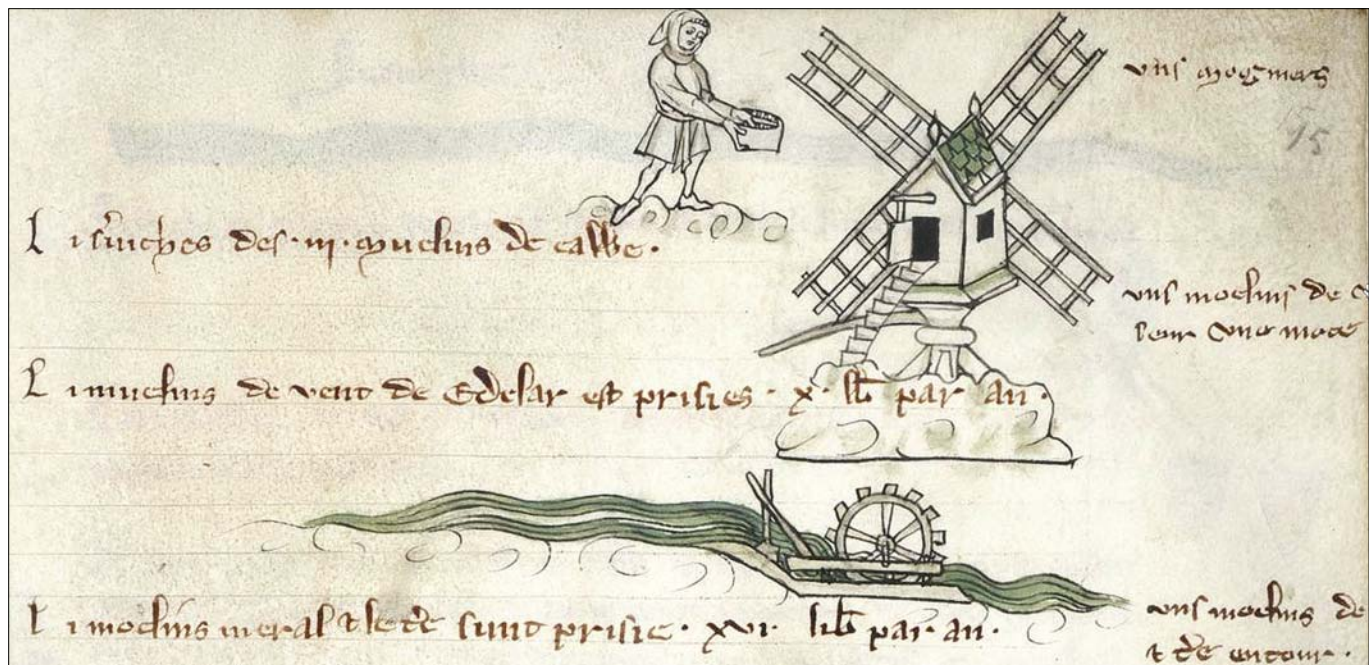 uns mogmers
15
Li s'uiches des · iii · muelins de calwe ·
uns moelins de
leur une mote
Li muelins de vent de Edelar est prisies · x · lb par an ·
Li moelins meral & le t're sunt prisie · xvi · lib par an ·
uns moelins de
& t're entour ·